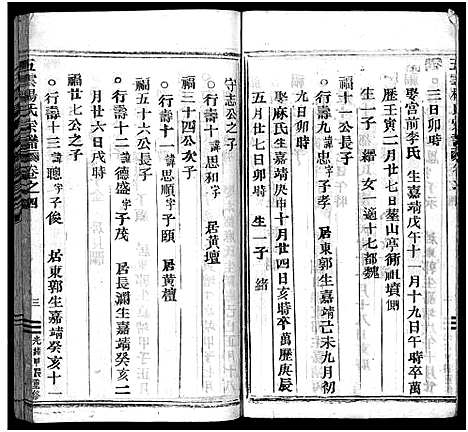 三日卯時
娶宮前李氏 生嘉靖戊午十一月十九日午時卒萬
歷壬寅二月廿七日墓山亭祔祖墳側
生一子 縉 女一適十七都魏
福十一公長子
行壽九 諱思忠 字子孝 居東郭生嘉靖己未九月初
娶麻氏生嘉靖庚申十月廿四日亥時卒萬歷庚辰
五月廿七日卯時 生一子 緒
守志公之子
行壽十 諱思和 字 居黃壇
福三十四公次子
行壽十一 諱思順 字子頤 居黃檀
福五十六公長子
行壽十二 諱德盛 字子茂 居長瀾生嘉靖癸亥二
月廿六日戌時
福廿七公之子
行壽十三 諱思聰 字子俊 居東郭生嘉靖癸亥十一
五雲楊氏宗譜 卷之四
三
光緒甲辰重修